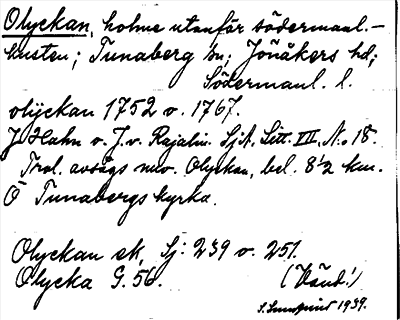 Olyckan, holme utanför södermanl.-
kusten; Tunaberg sn; Jönåkers hd;
Södermanl. l.
olÿckan 1752 o. 1767.
J. Hahn o. J. v. Rajalin. SjA, Litt. III, No 18.
Trol. avsågs nuv. Olyckan, bel. 8½ km.
Ö Tunabergs kyrka.
Olyckan ek, Sj: 239 o. 251.
Olycka G. 56. (Vänd!)
1939.